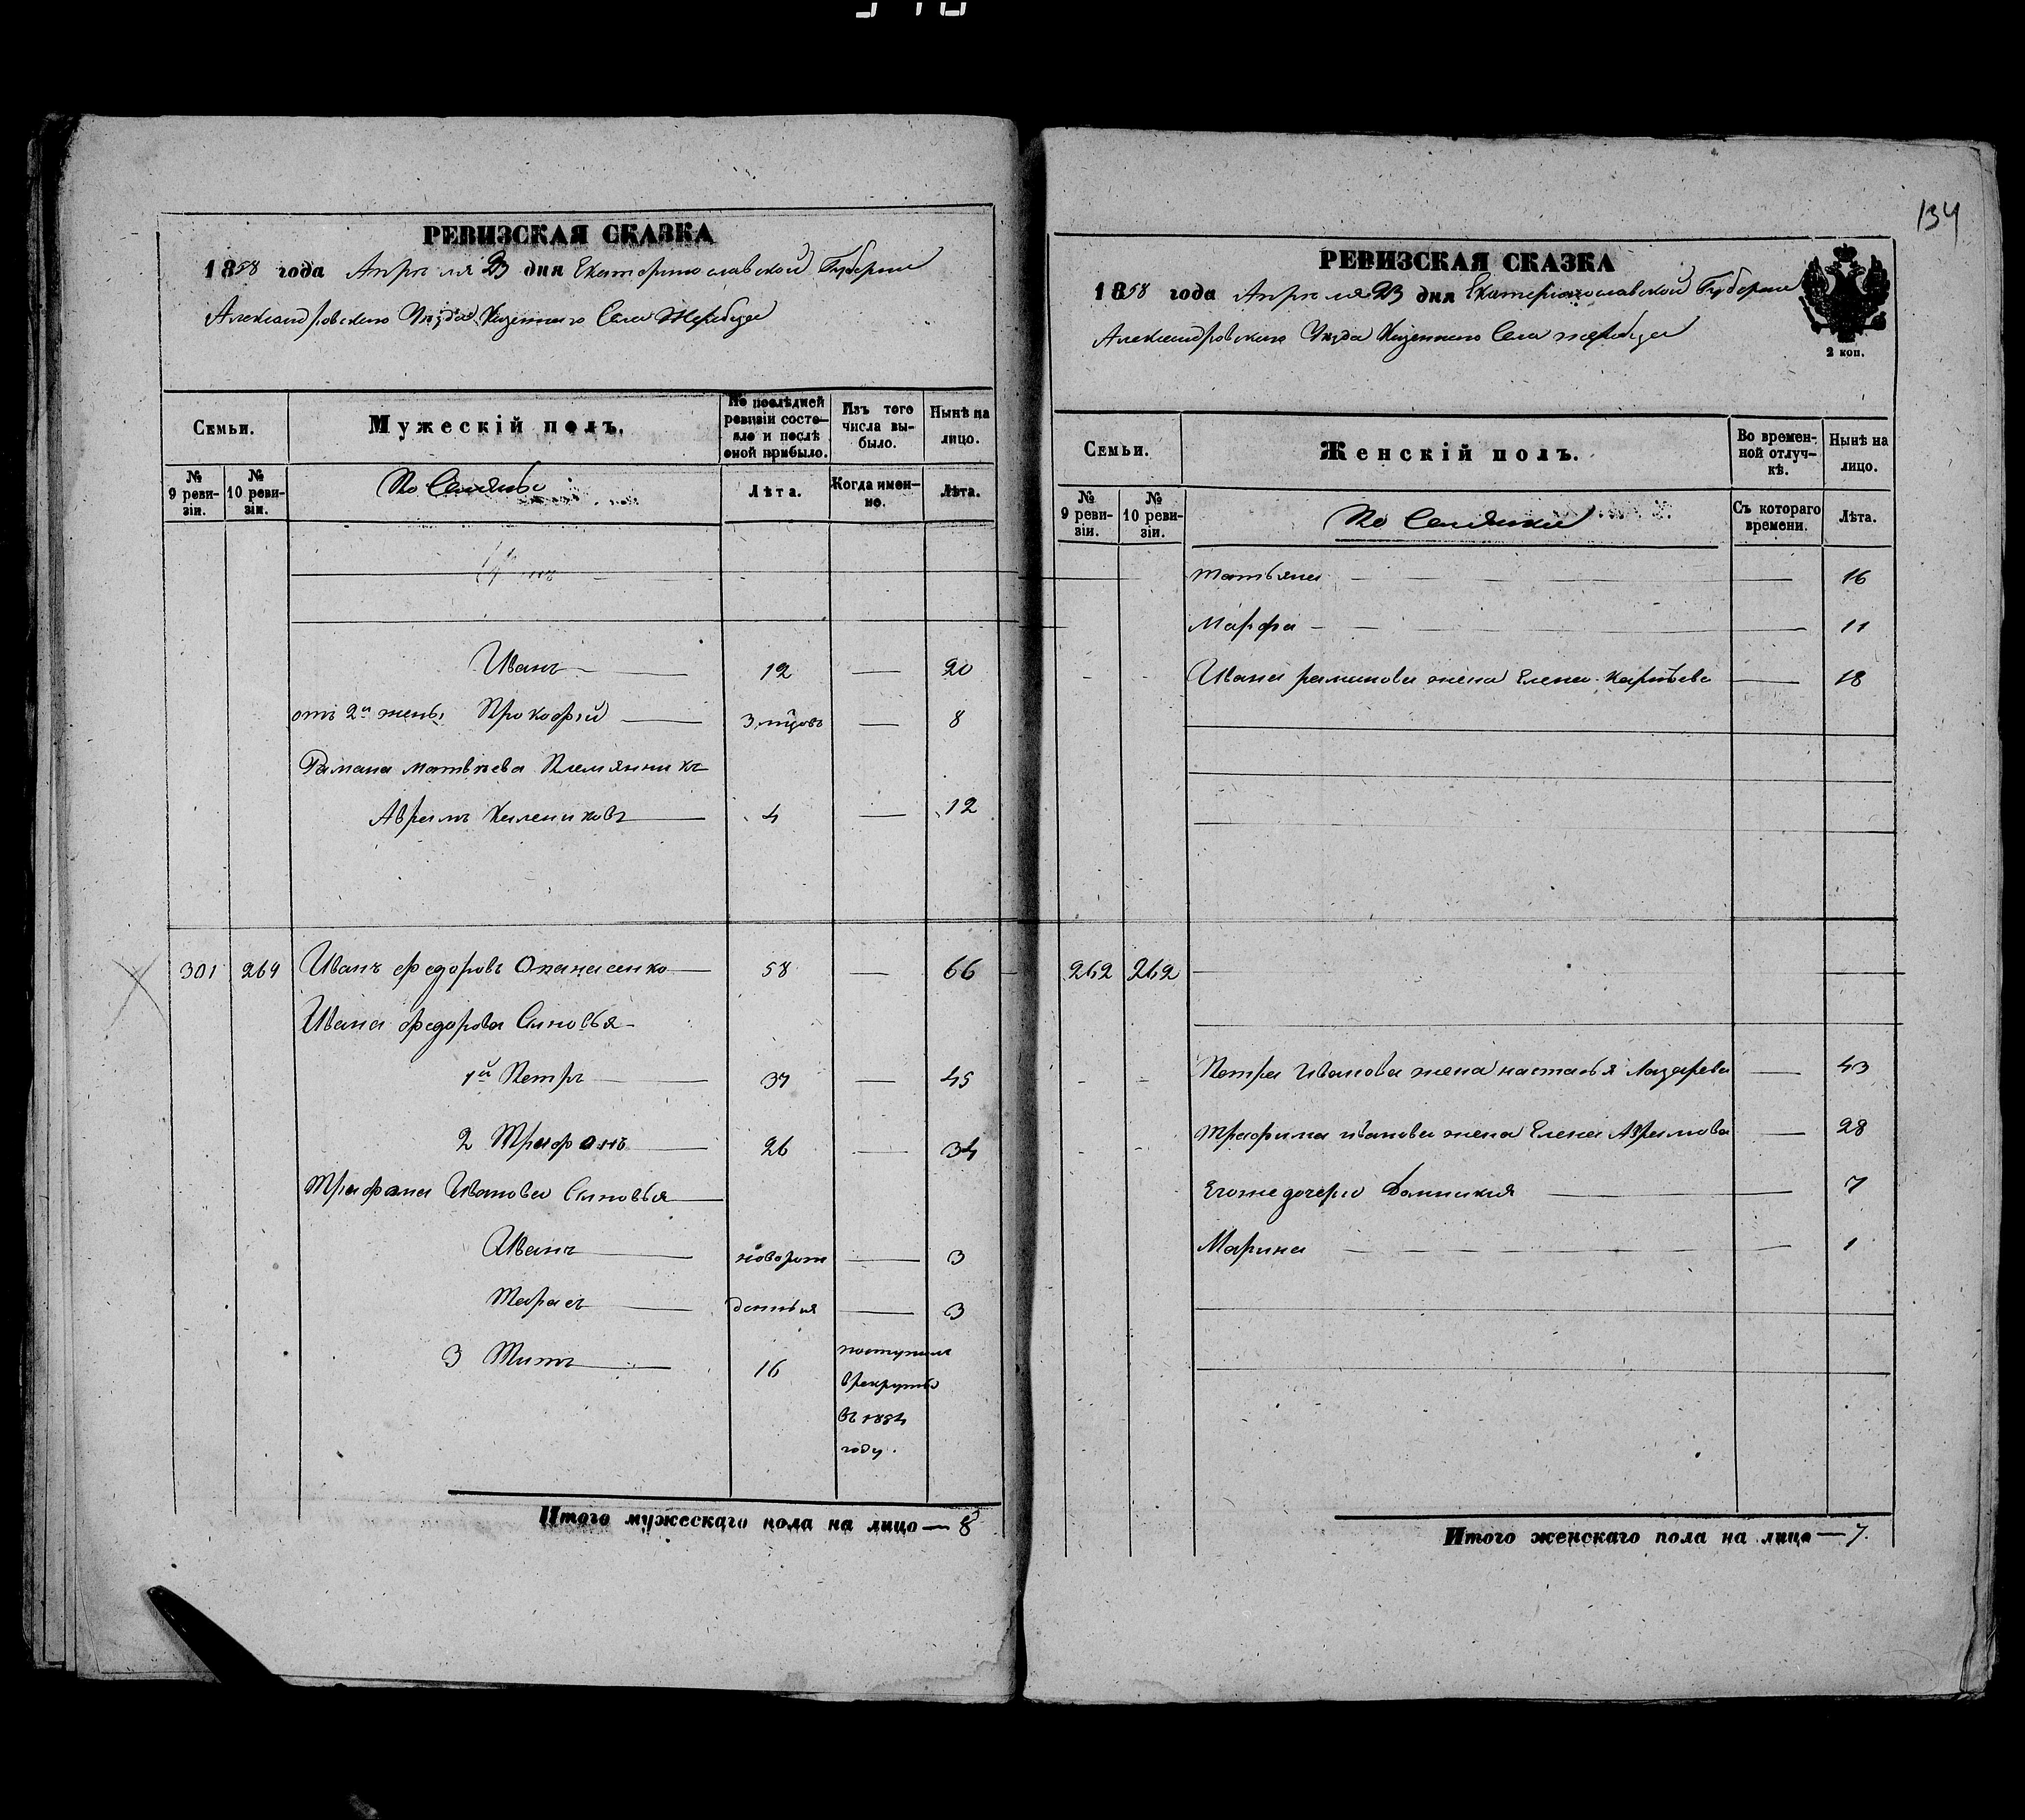 134
РЕВИЗСКАЯ СКАЗКА
1858 года Апреля 23 дня Екатеринославской Губернии
Александровского Уезда Казенного Села Жеребца
Семьи.
Мужескій полъ.
По послѣдней ревизіи состояло и послѣ оной прибыло.
Изъ того числа выбыло.
Нынѣ на лицо.
№ 9 ревизіи.
№ 10 ревизіи.
Лѣта.
Когда именно.
Лѣта.
Иванъ — 12 — 20
отъ 2й жены Прокофій — 3 мцовъ — 8
Рамана Матвѣева Племянникъ
Аврамъ — 4 — 12
301 264 Иванъ Федоровъ Опанасенко — 58 — 66
Ивана Федорова Сыновья
1й Петръ — 37 — 45
2 Трифонъ — 26 — 34
Трифона Иванова Сыновья
Иванъ — новорож — 3
Тарасъ — денныя — 3
3 Титъ — 16
поступилъ
в рекруты
въ 1854
году.
Итого мужескаго пола на лицо — 8
РЕВИЗСКАЯ СКАЗКА
1858 года Апреля 23 дня Екатеринославской Губернии
Александровского Уезда Казенного Села Жеребца
2 коп.
Семьи.
Женскій полъ.
Во временной отлучкѣ.
Нынѣ на лицо.
№ 9 ревизіи.
№ 10 ревизіи.
Съ котораго времени.
Лѣта.
Татьяна — 16
Марфа — 11
Ивана Раманова жена Елена — 18
262 262
Петра Иванова жена Настасья Лазарева — 43
Трифона Иванова жена Елена Аврамова — 28
Егоже дочери Домникия — 7
Марина — 1
Итого женскаго пола на лицо — 7.